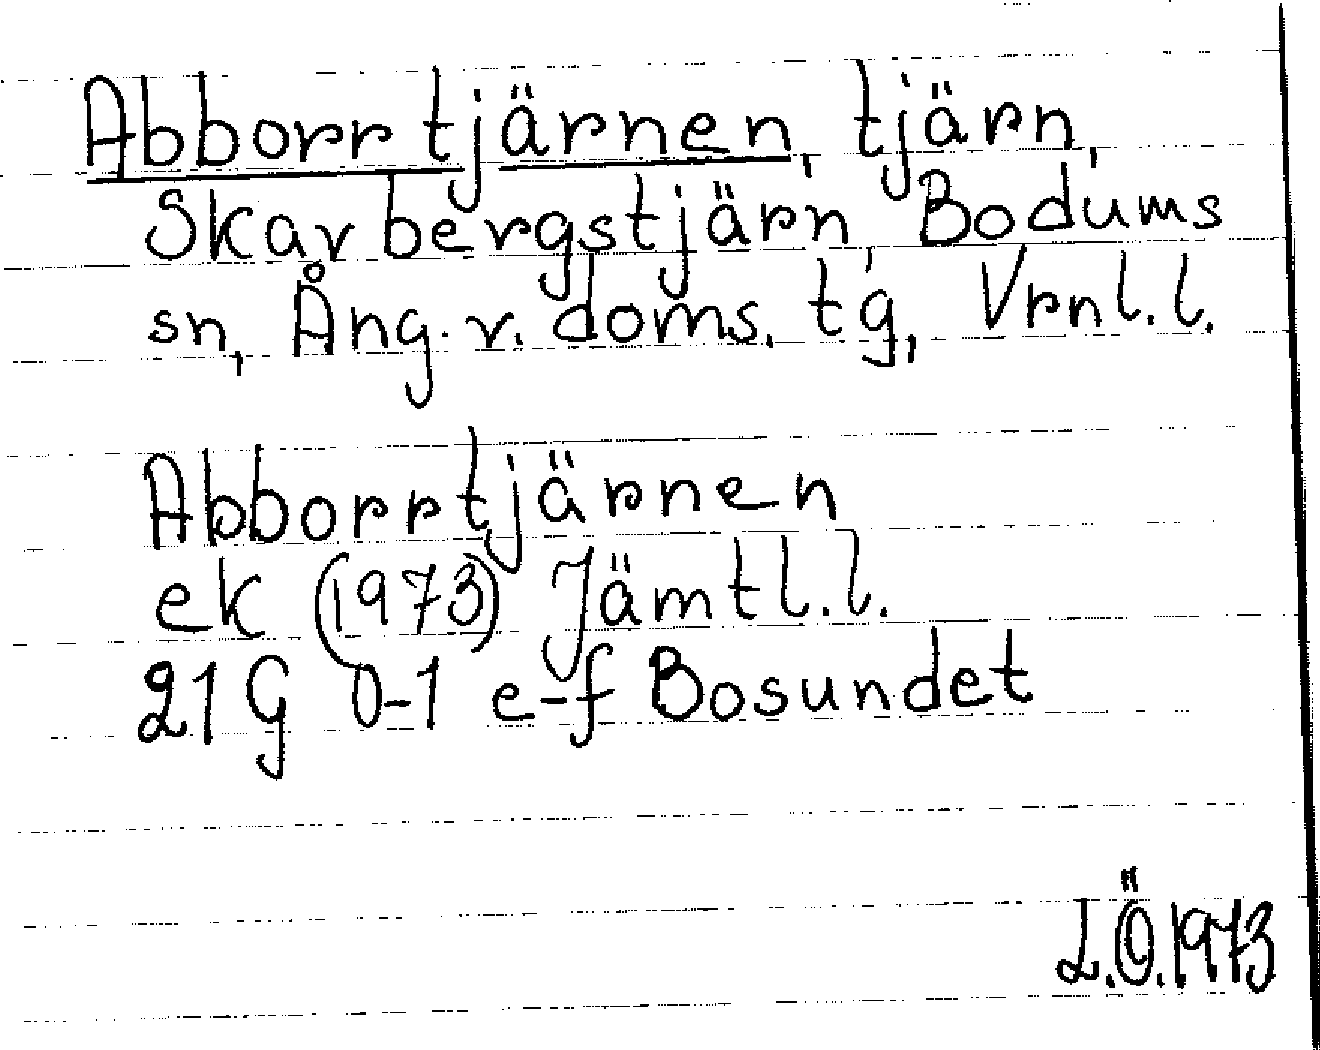 Abborrtjärnen, tjärn,
Skarvbergstjärn, Bodums
sn, Ång. v. doms. tg, Vrnl. l.
Abborrtjärnen
ek (1973) Jämtl. l.
21 G 0-1 e-f Bosundet
L.Ö. 1973